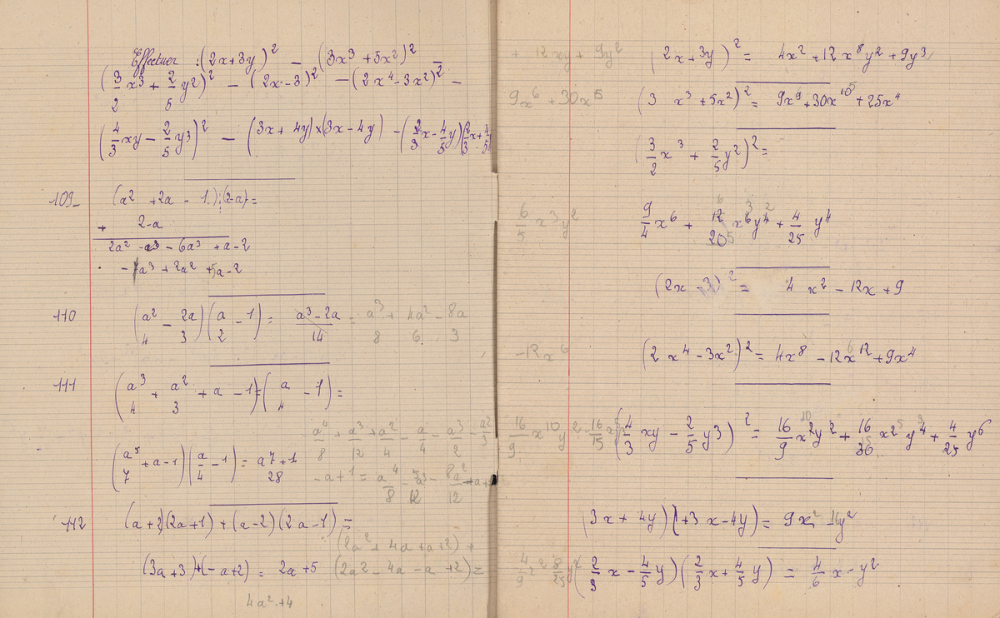 Effectuer : (2x+3y)² — (3x³+5x²)²
(3/2 x³ + 2/5 y²)² — (2x-3)² — (2x⁴-3x²)² —
(4/3 xy — 2/5 y³)² — (3x+4y)×(3x-4y) — (2/3 x - 4/5 y)(2/3 x + 4/5
109 (a² + 2a - 1) : (2-a) =
+ 2-a
2a² - a³ - 6a³ + a - 2
- 7a³ + 2a² + 5a - 2
110 (a²/4 - 2a/3)(a/2 - 1) = a³-2a/14 = a³/8 + 4a²/6 - 8a/3
111 (a³/4 + a²/3 + a - 1)(a/4 - 1) =
a⁴/8 + a³/12 + a²/4 - a/4 - a³/2 - a²/3
(a⁵/7 + a - 1)(a/4 - 1) = a7+1/28 - a + 1 = a⁴/8
112 (a+2)(2a+1) + (a-2)(2a-1) =
(2a² + 4a + a + 2) +
(3a+3) + (-a+2) = 2a+5 (2a² - 4a - a + 2) =
4a² + 4
+ 12xy + 9y² (2x+3y)² = 4x² + 12x⁸y² + 9y³
9x⁶ + 30x⁵ (3x³ + 5x²)² = 9x⁹ + 30x¹⁰ + 25x⁴
(3/2 x³ + 2/5 y²)² =
6/5 x³y² 9/4 x⁶ + 12/20 x⁶y⁴ + 4/25 y⁴
(2x - 3)² = 4x² - 12x + 9
-12x⁶ (2x⁴ - 3x²)² = 4x⁸ - 12x¹² + 9x⁴
16/9 x¹⁰y² - 16/15 (4/3 xy - 2/5 y³)² = 16/9 x²y² + 16/30 x²y⁴ + 4/25 y⁶
(3x + 4y)(+3x - 4y) = 9x² 16y²
(2/3 x - 4/5 y)(2/3 x + 4/5 y) = 4/6 x - y²